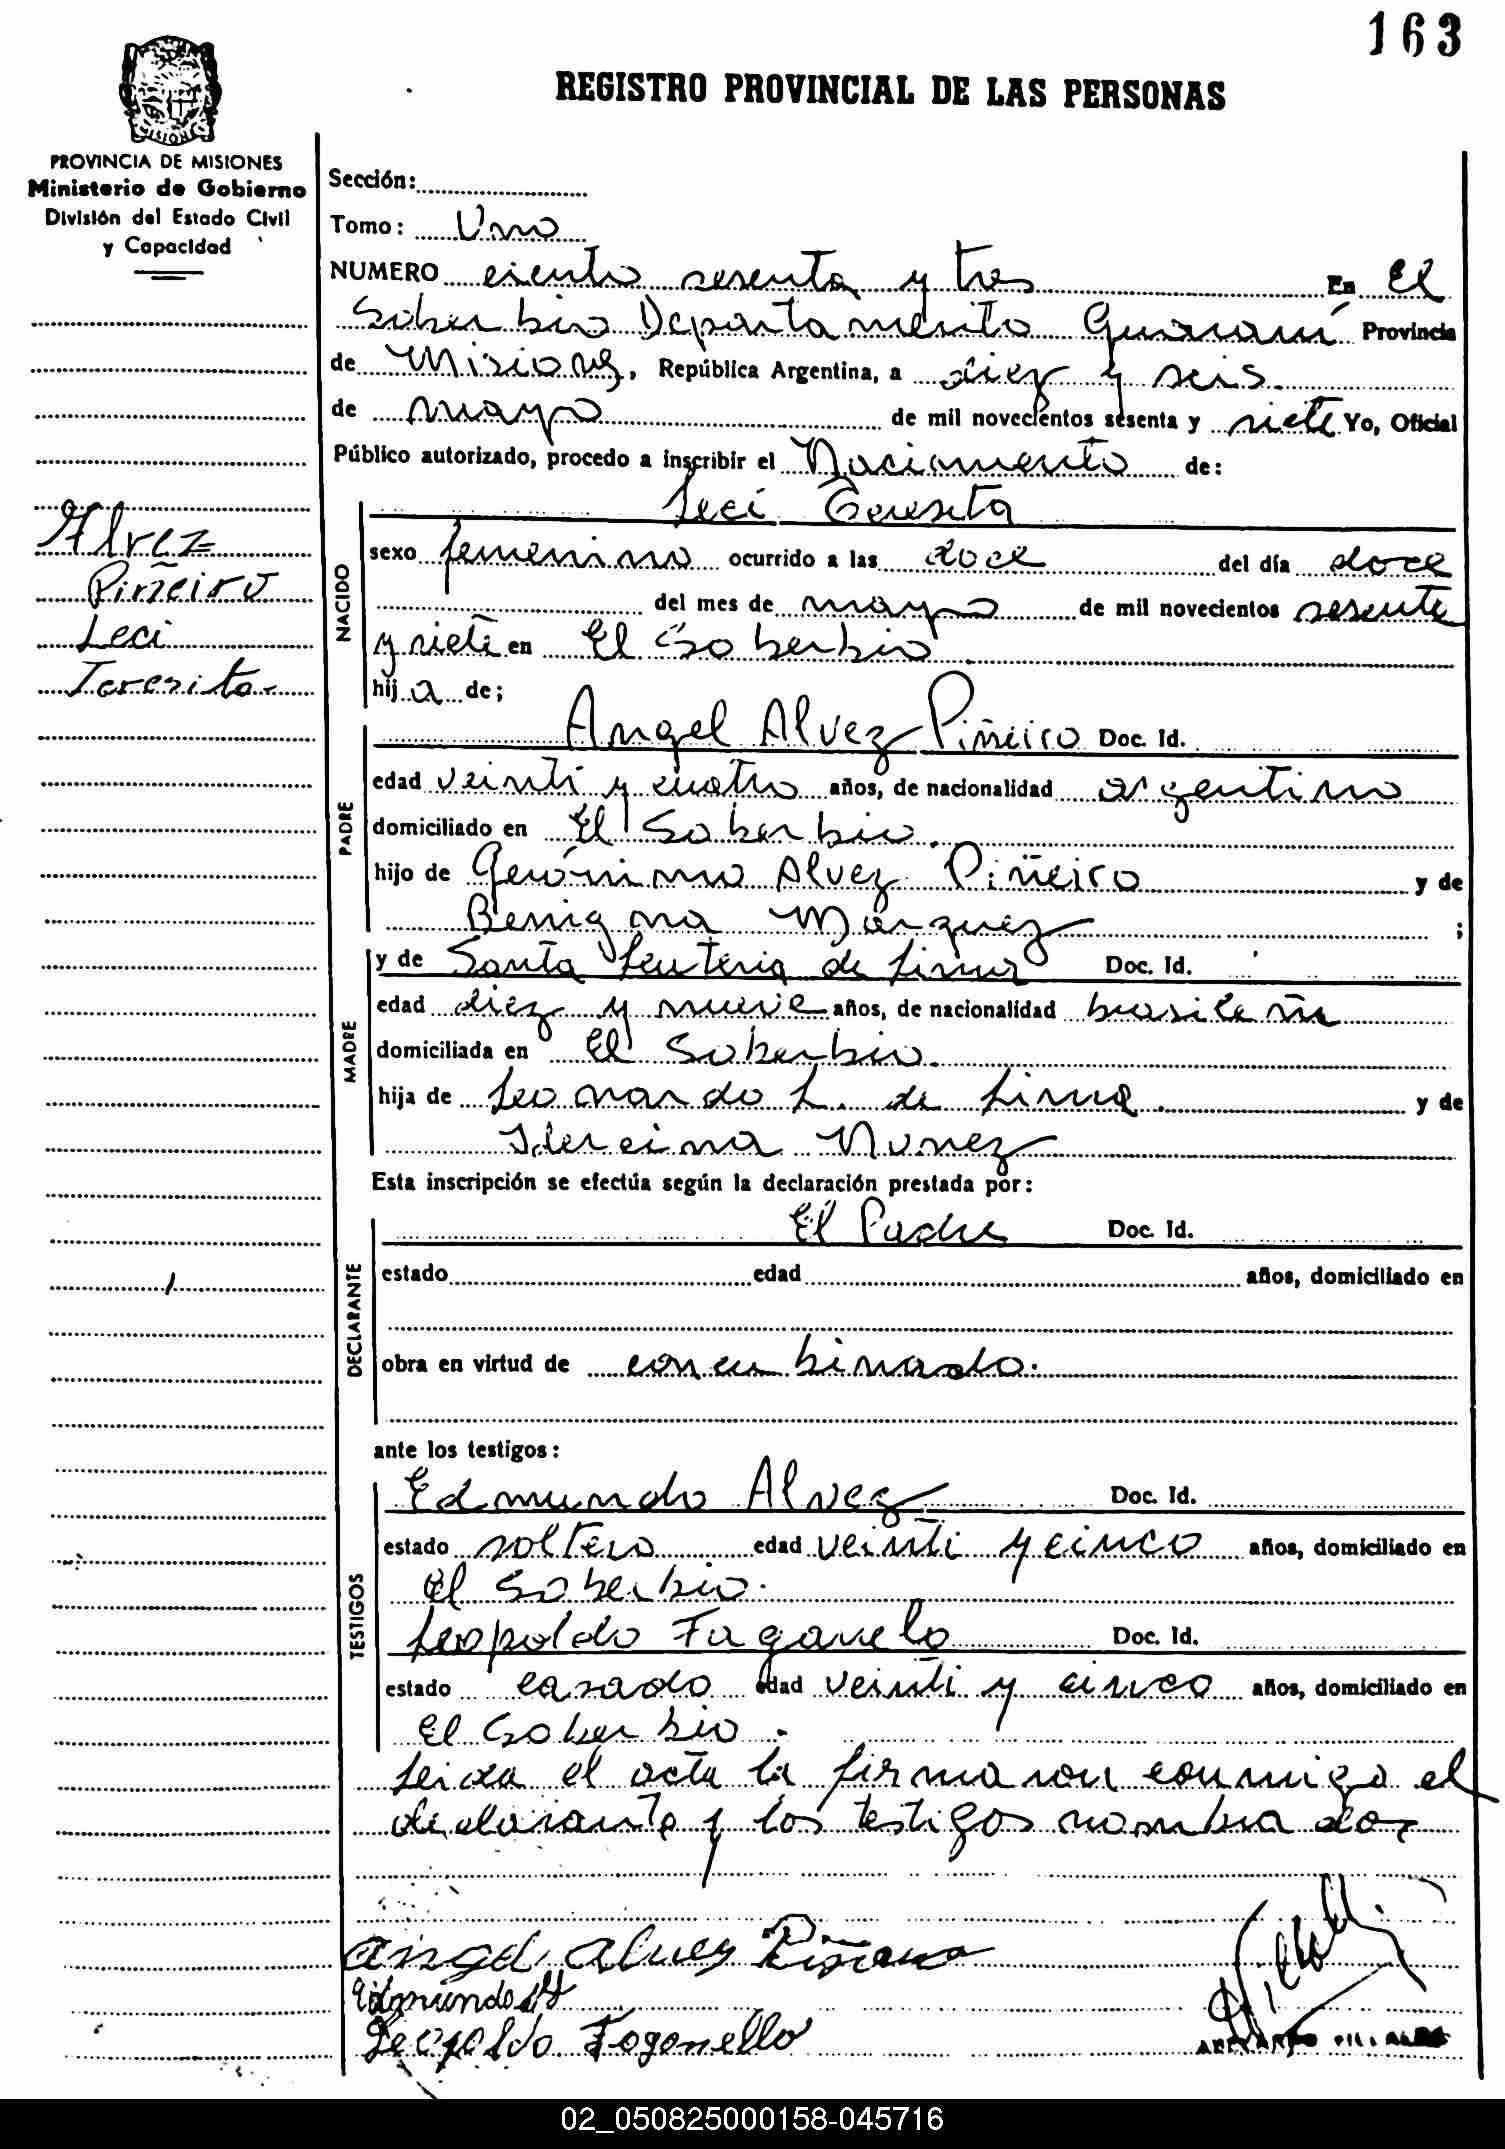 163
REGISTRO PROVINCIAL DE LAS PERSONAS
PROVINCIA DE MISIONES
Ministerio de Gobierno
División del Estado Civil
y Capacidad
Sección:
Tomo: Uno
NUMERO ciento sesenta y tres En El
Soberbio Departamento Guaraní Provincia
de Misiones, República Argentina, a diez y seis.
de mayo de mil novecientos sesenta y siete Yo, Oficial
Público autorizado, procedo a inscribir el Nacimiento de:
Alvez
Piñeiro
Leci
Teresita-
NACIDO
Leci Teresita
sexo femenino ocurrido a las doce del día doce
del mes de mayo de mil novecientos sesenta
y siete en El Soberbio
hija de;
PADRE
Angel Alvez Piñeiro Doc. Id.
edad veinti y cuatro años, de nacionalidad argentino
domiciliado en El Soberbio.
hijo de Gerónimo Alvez Piñeiro y de
Benigna Márquez ;
MADRE
y de Santa de Lima Doc. Id.
edad diez y nueve años, de nacionalidad brasileña
domiciliada en El Soberbio.
hija de Leonardo L. de Lima. y de
Nunez
Esta inscripción se efectúa según la declaración prestada por:
DECLARANTE
El Padre Doc. Id.
estado edad años, domiciliado en
obra en virtud de concubinado.
ante los testigos:
TESTIGOS
Edmundo Alvez Doc. Id.
estado soltero edad veinti y cinco años, domiciliado en
El Soberbio.
Leopoldo Doc. Id.
estado casado edad veinti y cinco años, domiciliado en
El Soberbio.
Leida el acta la firmaron conmigo el
declarante y los testigos nombrados
Angel Alvez Piñeiro
Edmundo
Leopoldo Fogonello
02_050825000158-045716